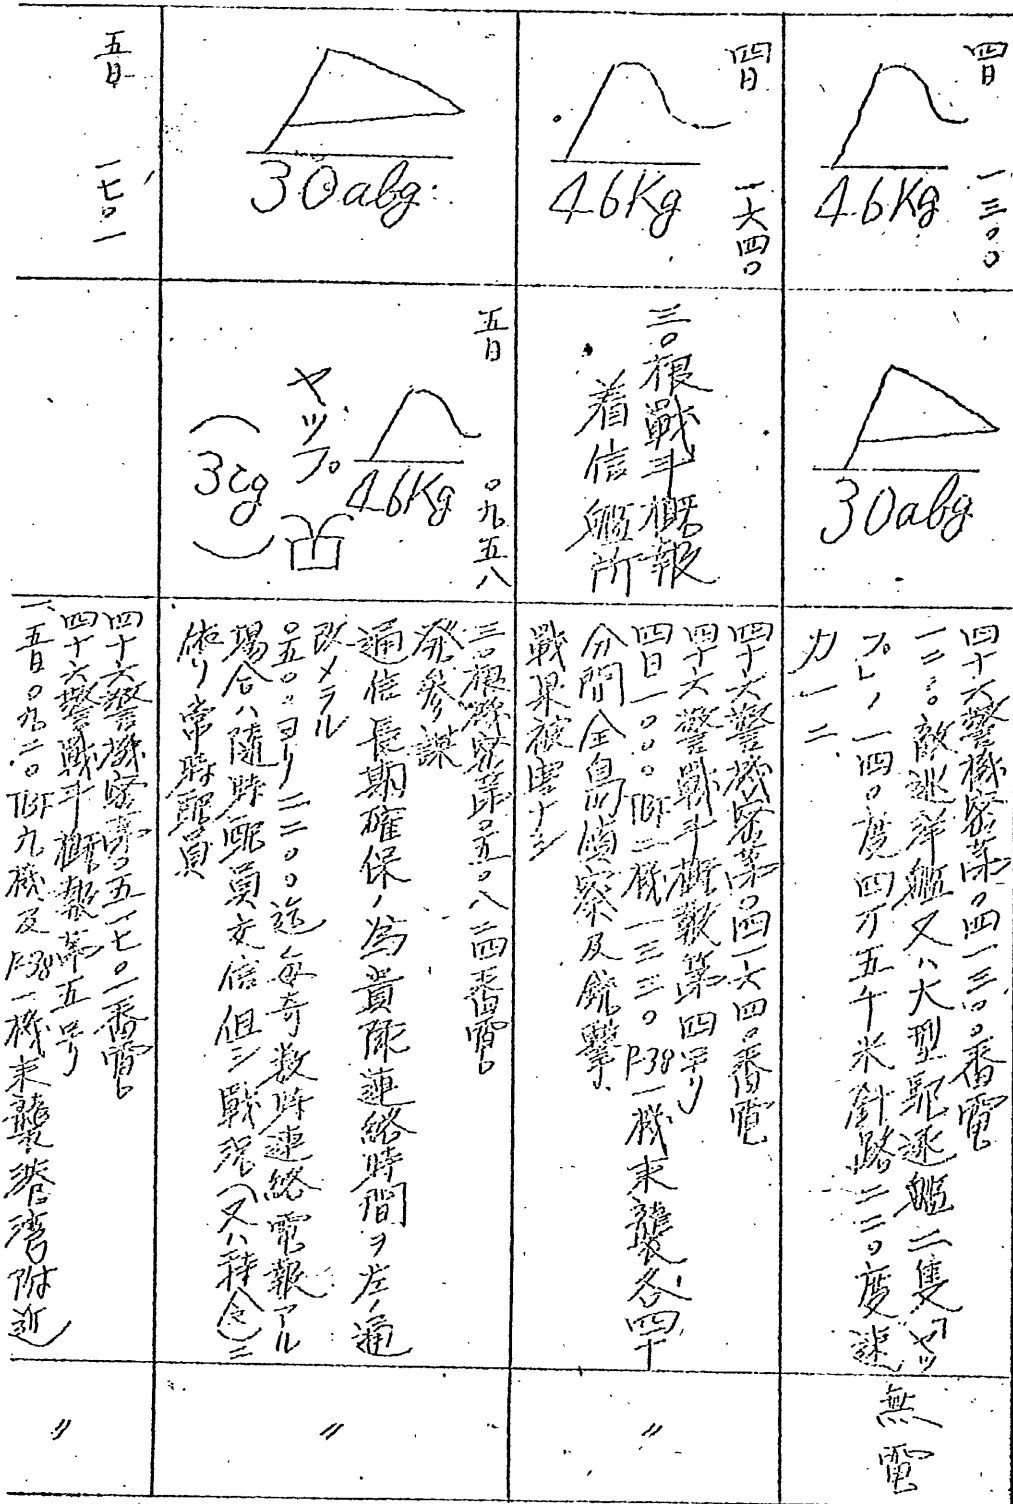 四日 一三〇〇
46Kg
30abg
四十六警機密第〇四一三〇〇番電
一二〇〇敵巡洋艦又ハ大型駆逐艦二隻「ヤッ
プ」ノ一四〇度四万五千米針路二二〇度速
力一二
無電
四日 一六四〇
46Kg
三〇根戦斗概報
着信艦所
四十六警機密第〇四一六四〇番電
四十六警戦斗概報第四号
四日一〇〇〇TBF二機一三三〇P-38一機来襲各四十
分間全島偵察及銃撃
戦果被害ナシ
〃
30abg
五日 〇九五八
46Kg
ヤップ
(3cg)
三〇根機密第〇五〇八二四番電
発参謀
通信長期確保ノ為貴隊連絡時間ヲ左ノ通
改メラル
〇五〇〇ヨリ二二〇〇迄毎奇数時連絡電報アル
場合ハ随時配員交信但シ戦況(又ハ特令)ニ
依リ常時配員
〃
五日 一七〇一
四十六警機密第〇五一七〇一番電
四十六警戦斗概報第五号
一、五日〇九二〇TBF九機及P-38一機来襲港湾附近
〃